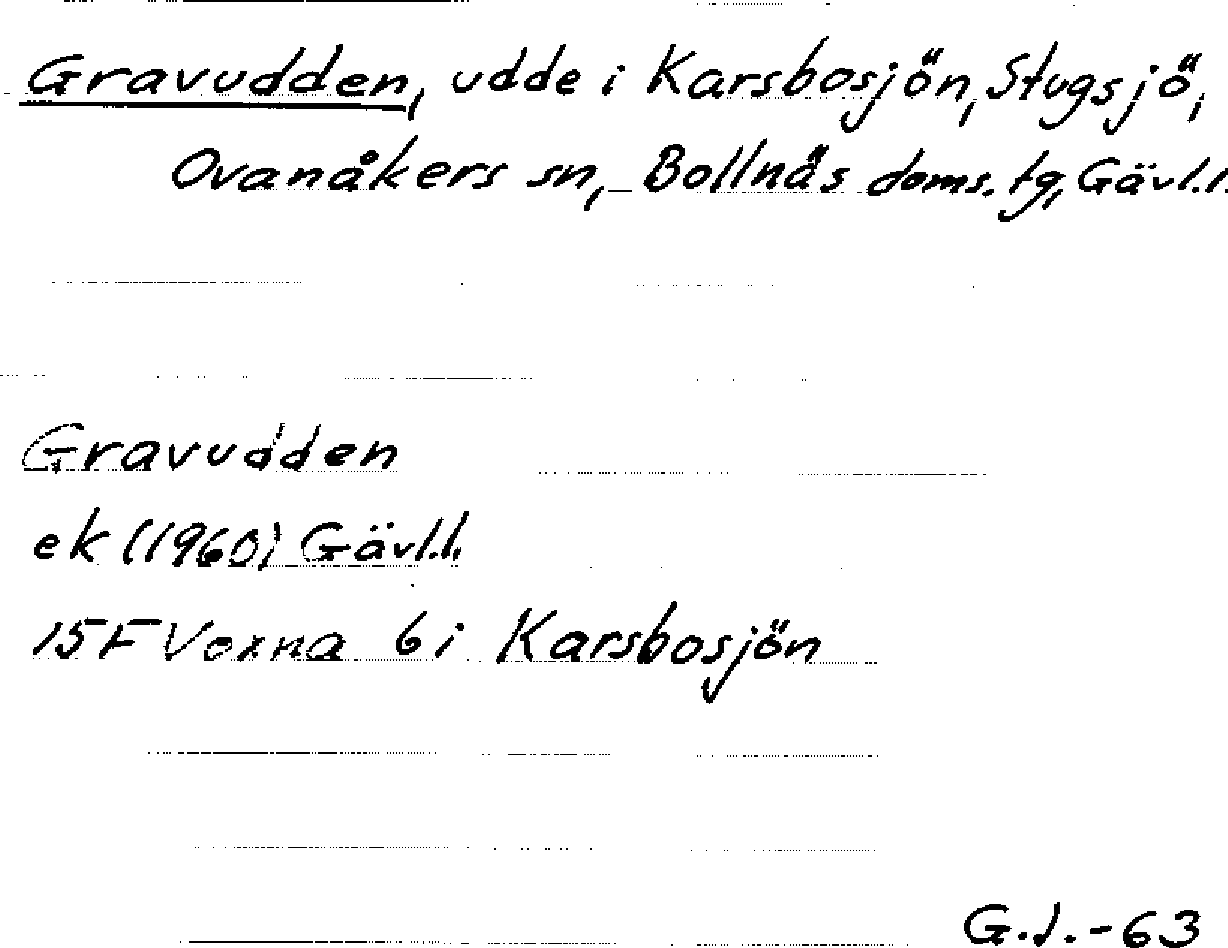 Gravudden, udde i Karsbosjön, Stugsjö,
Ovanåkers sn, Bollnäs doms. tg, Gävl.l.
Gravudden
ek (1960) Gävl.l.
15F Voxna 6i Karsbosjön
G.J.-63